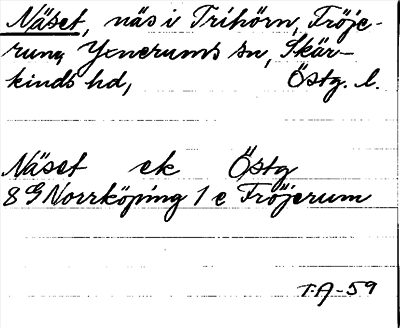 Näset, näs i Trihörn, Fröje-
rum, Yxnerums sn, Skär-
kinds hd, Östg. l.
Näset ek Östg
8 G Norrköping 1 e Fröjerum
T.A-59